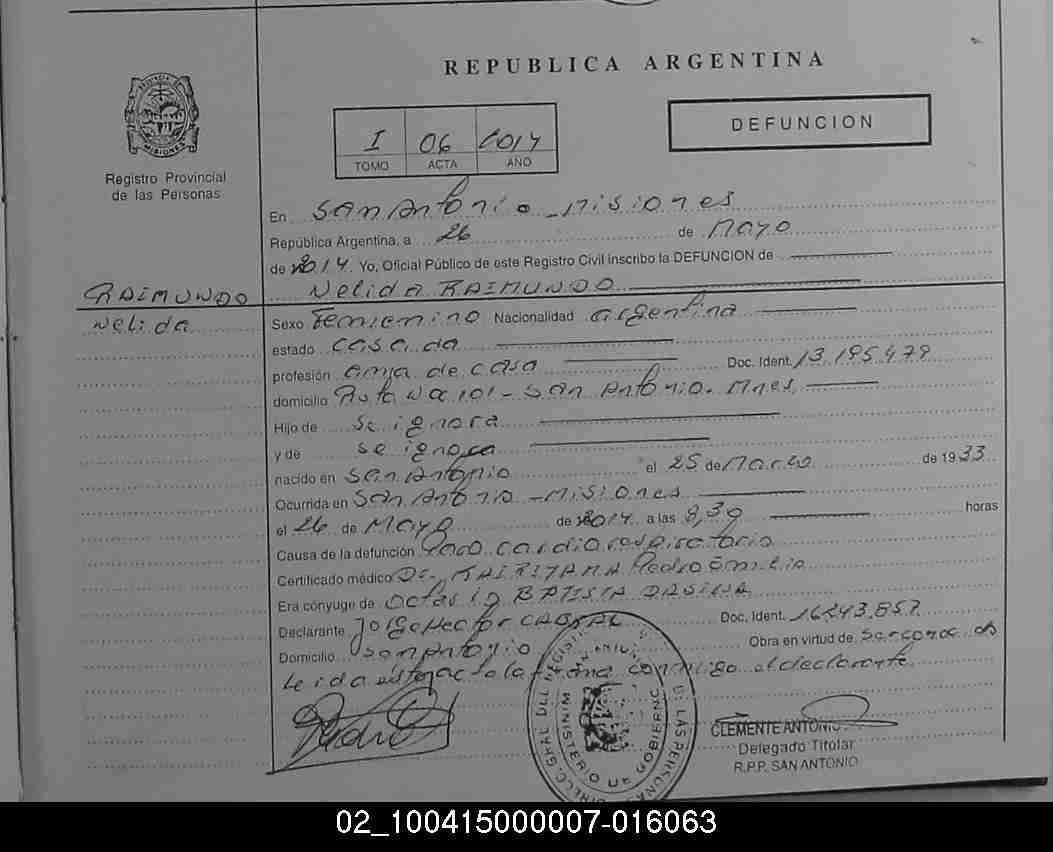 REPUBLICA ARGENTINA
PROVINCIA DE
MISIONES
Registro Provincial
de las Personas
I 06 2014
TOMO ACTA AÑO
DEFUNCION
En San Antonio - Misiones
República Argentina, a 26 de Mayo
de 2014. Yo, Oficial Público de este Registro Civil inscribo la DEFUNCION de
RAIMUNDO
Nelida
Nelida RAIMUNDO
Sexo Femenino Nacionalidad argentina
estado casada
profesión ama de casa Doc. Ident. 13.195.479
domicilio Ruta Nac 101 - San Antonio. Mnes,
Hijo de se ignora
y de se ignora
nacido en San Antonio el 25 de Marzo de 1933
Ocurrida en San Antonio - Misiones
el 26 de Mayo de 2014 a las 8,30 horas
Causa de la defunción Paro cardiorespiratorio
Certificado médico Dr. Pedro Emilio
Era cónyuge de BATISTA DASILVA
Declarante Jorge Hector CABRAL Doc. Ident. 16.243.857
Domicilio San Antonio Obra en virtud de
Leida esta acta la firma conmigo el declarante
DIRECC. GRAL. DEL REGISTRO
DE LAS PERSONAS
MINISTERIO DE GOBIERNO
CLEMENTE ANTONIO
Delegado Titular
R.P.P. SAN ANTONIO
02_100415000007-016063